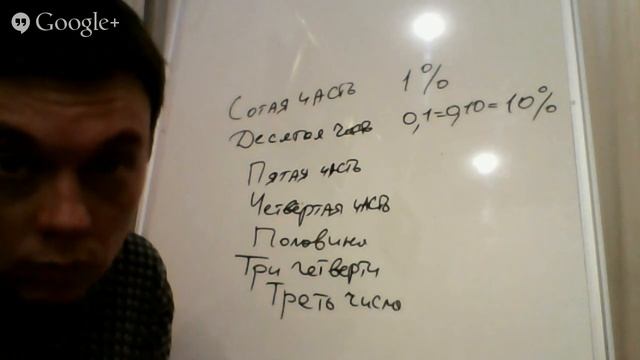 Google+
Сотая часть 1%
Десятая часть 0,1=0,10=10%
Пятая часть
Четвертая часть
Половина
Три четверти
Треть число